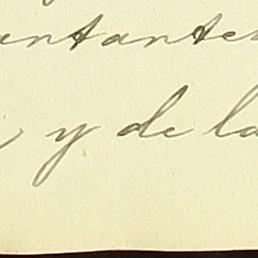 antante
y de la